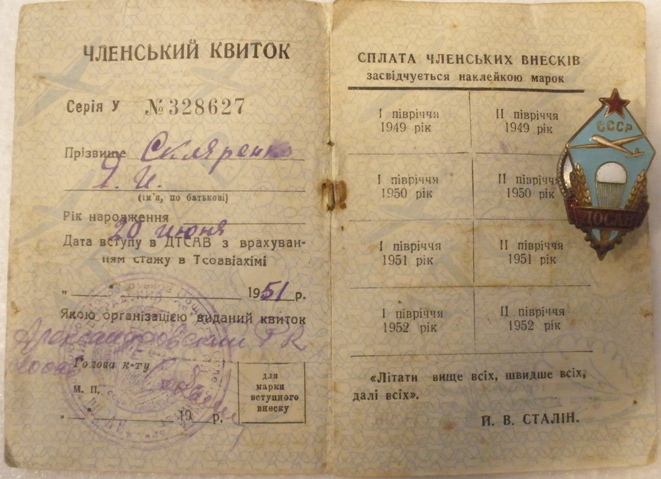 ЧЛЕНСЬКИЙ КВИТОК
Серія У №328627
Прізвище Скляренко
Я. И.
(ім'я, по батькові)
Рік народження
20 июня
Дата вступу в ДТСАВ з врахуван-
ням стажу в Тсоавіахімі
„ “ 1951 р.
Якою організацією виданий квиток
Голова к-ту
М. П.
„ “ 19 р.
для
марки
вступного
внеску
СПЛАТА ЧЛЕНСЬКИХ ВНЕСКІВ
засвідчується наклейкою марок
I півріччя
1949 рік
II півріччя
1949 рік
I півріччя
1950 рік
II півріччя
1950 рік
I півріччя
1951 рік
II півріччя
1951 рік
I півріччя
1952 рік
II півріччя
1952 рік
«Літати вище всіх, швидше всіх,
далі всіх».
Й. В. СТАЛІН.
СССР